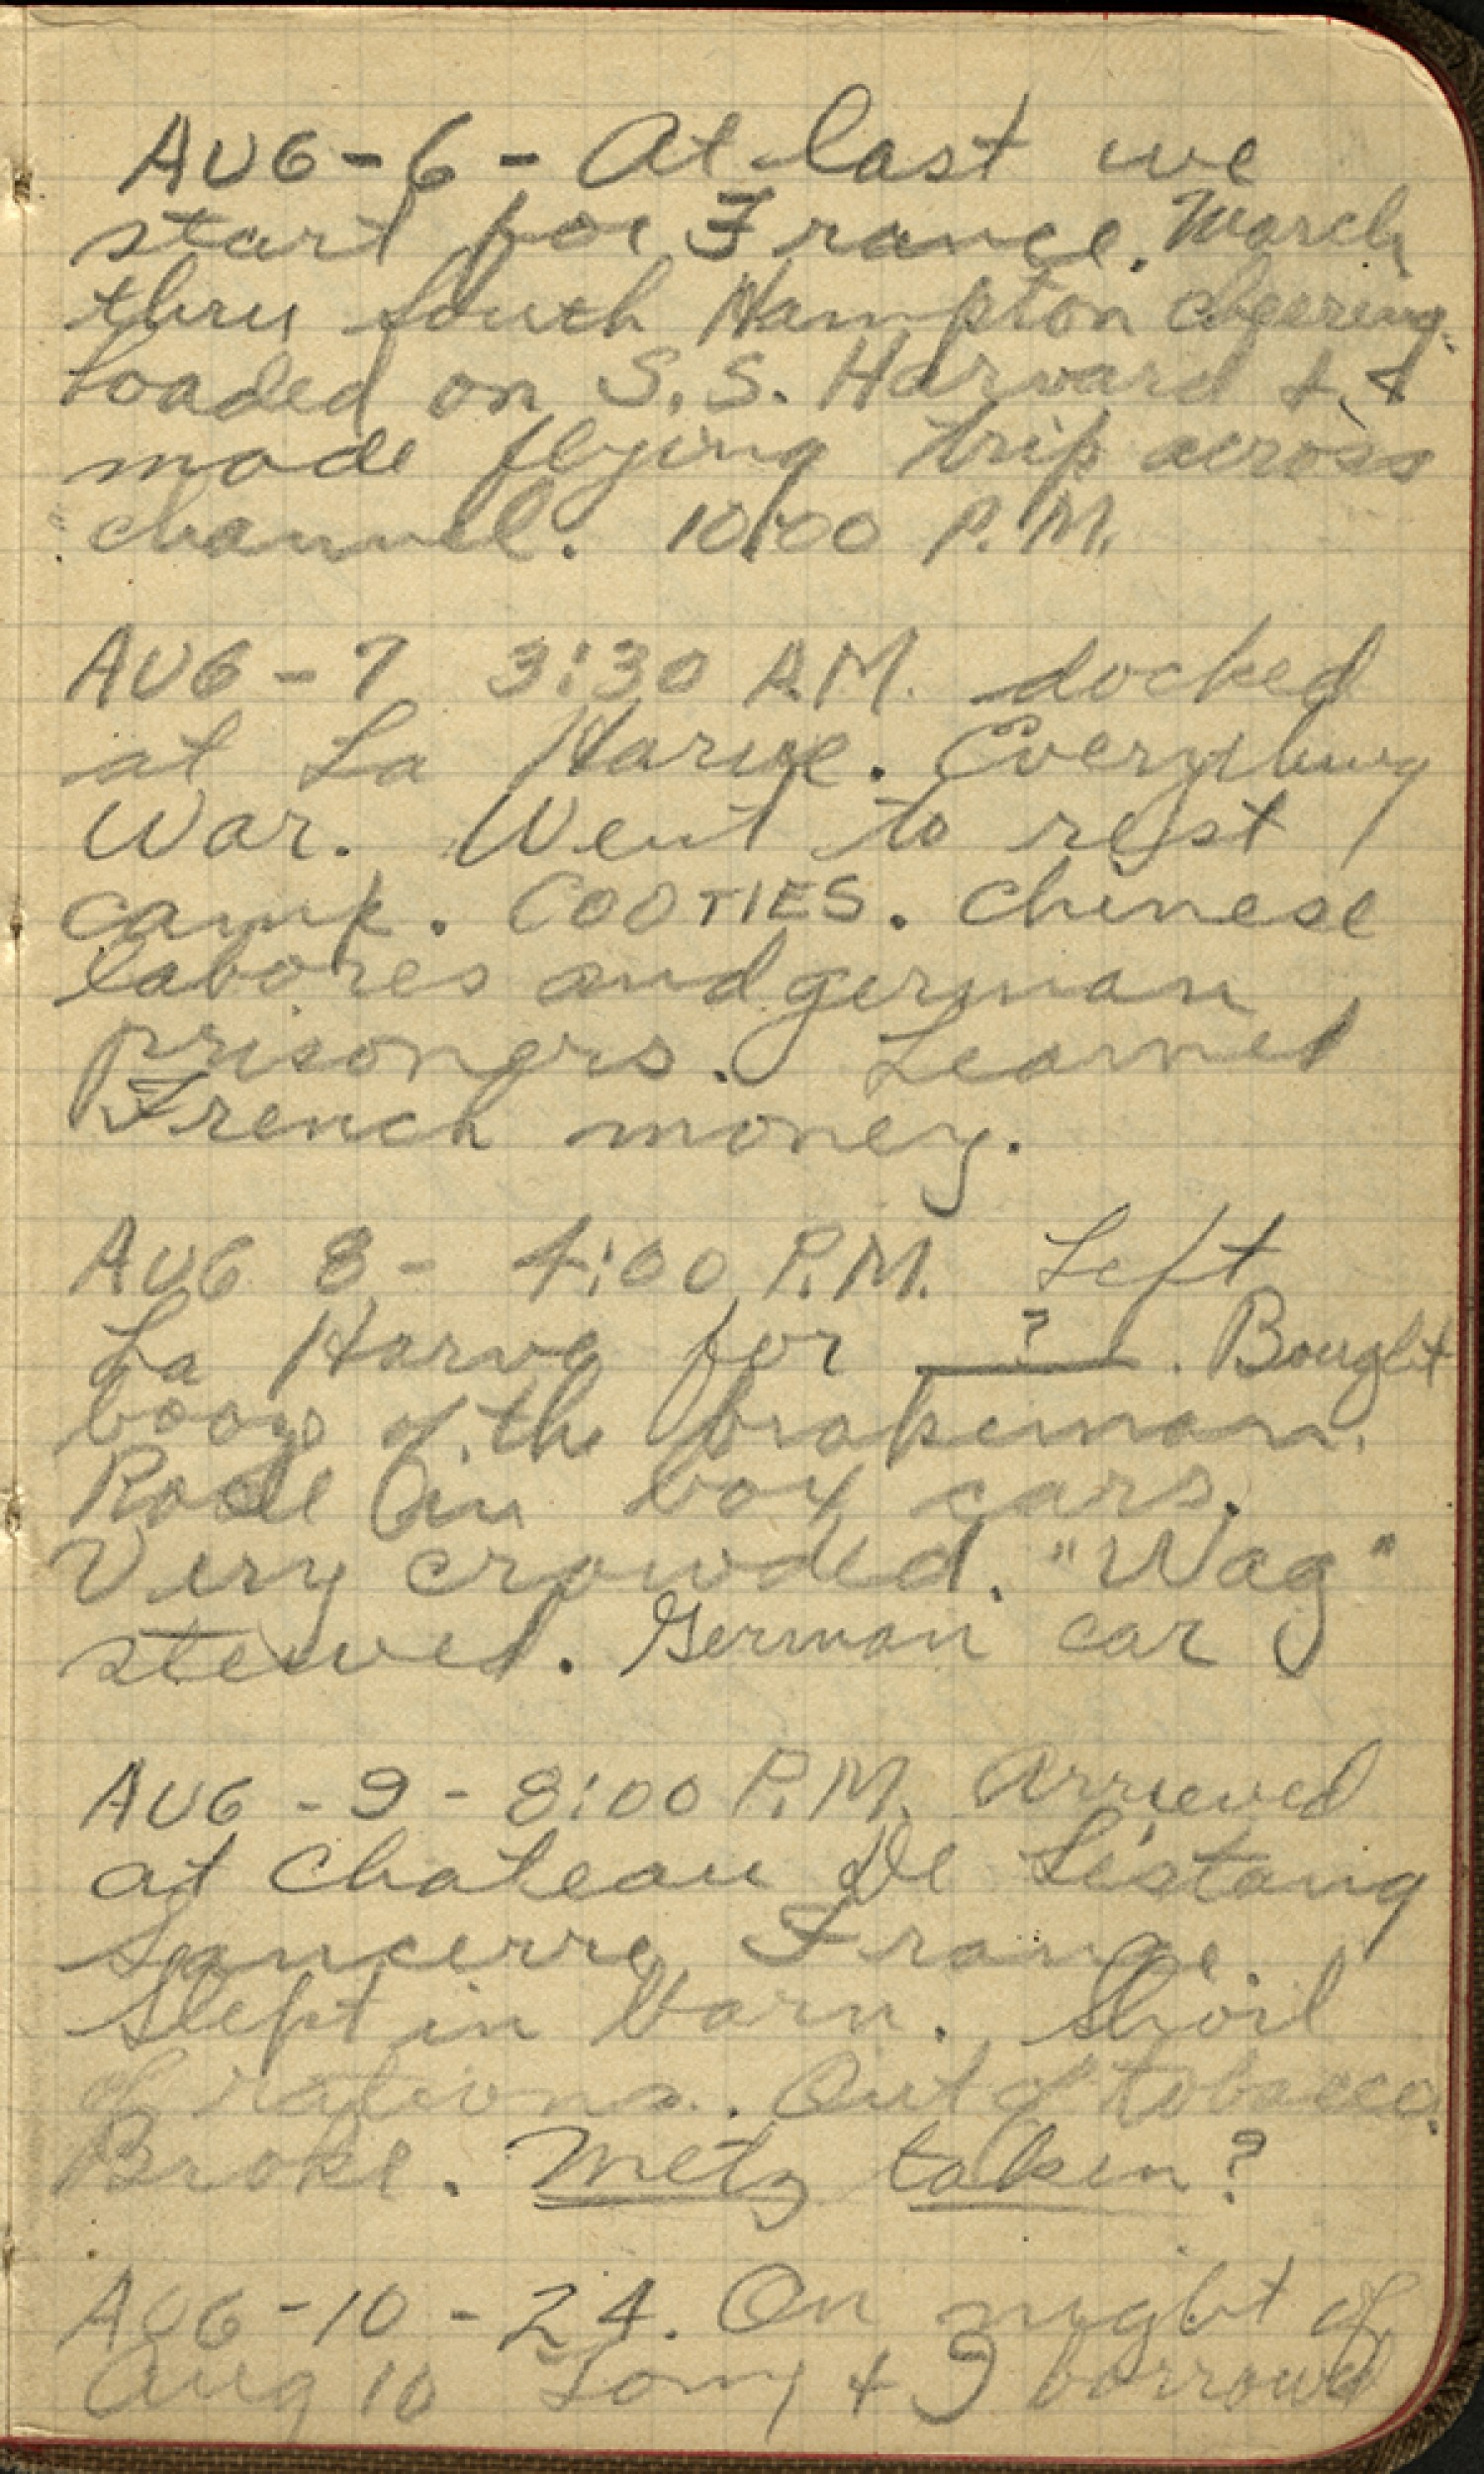 AUG-6- At last we
start for France. March
thru South Hampton cheering.
Loaded on S.S. Harvard &
made flying trip across
channel. 10:00 P.M.
AUG-7 3:30 A.M. docked
at La Harve. Everything
War. Went to rest
camp. COOTIES. Chinese
labores and german
prisoners. Learned
French money.
AUG 8- 4:00 P.M. Left
La Harve for ? . Bought
booze of the brakeman.
Rode in box cars.
Very crowded. "Wag"
stewed. German car
AUG-9-8:00 P.M. Arrieved
at Chateau De Lestang
Sancerre, France.
Slept in barn. Short
of rations. Out of tobacco.
Broke. Metz taken?
AUG-10-24. On night of
Aug 10 Tony + I borrowed